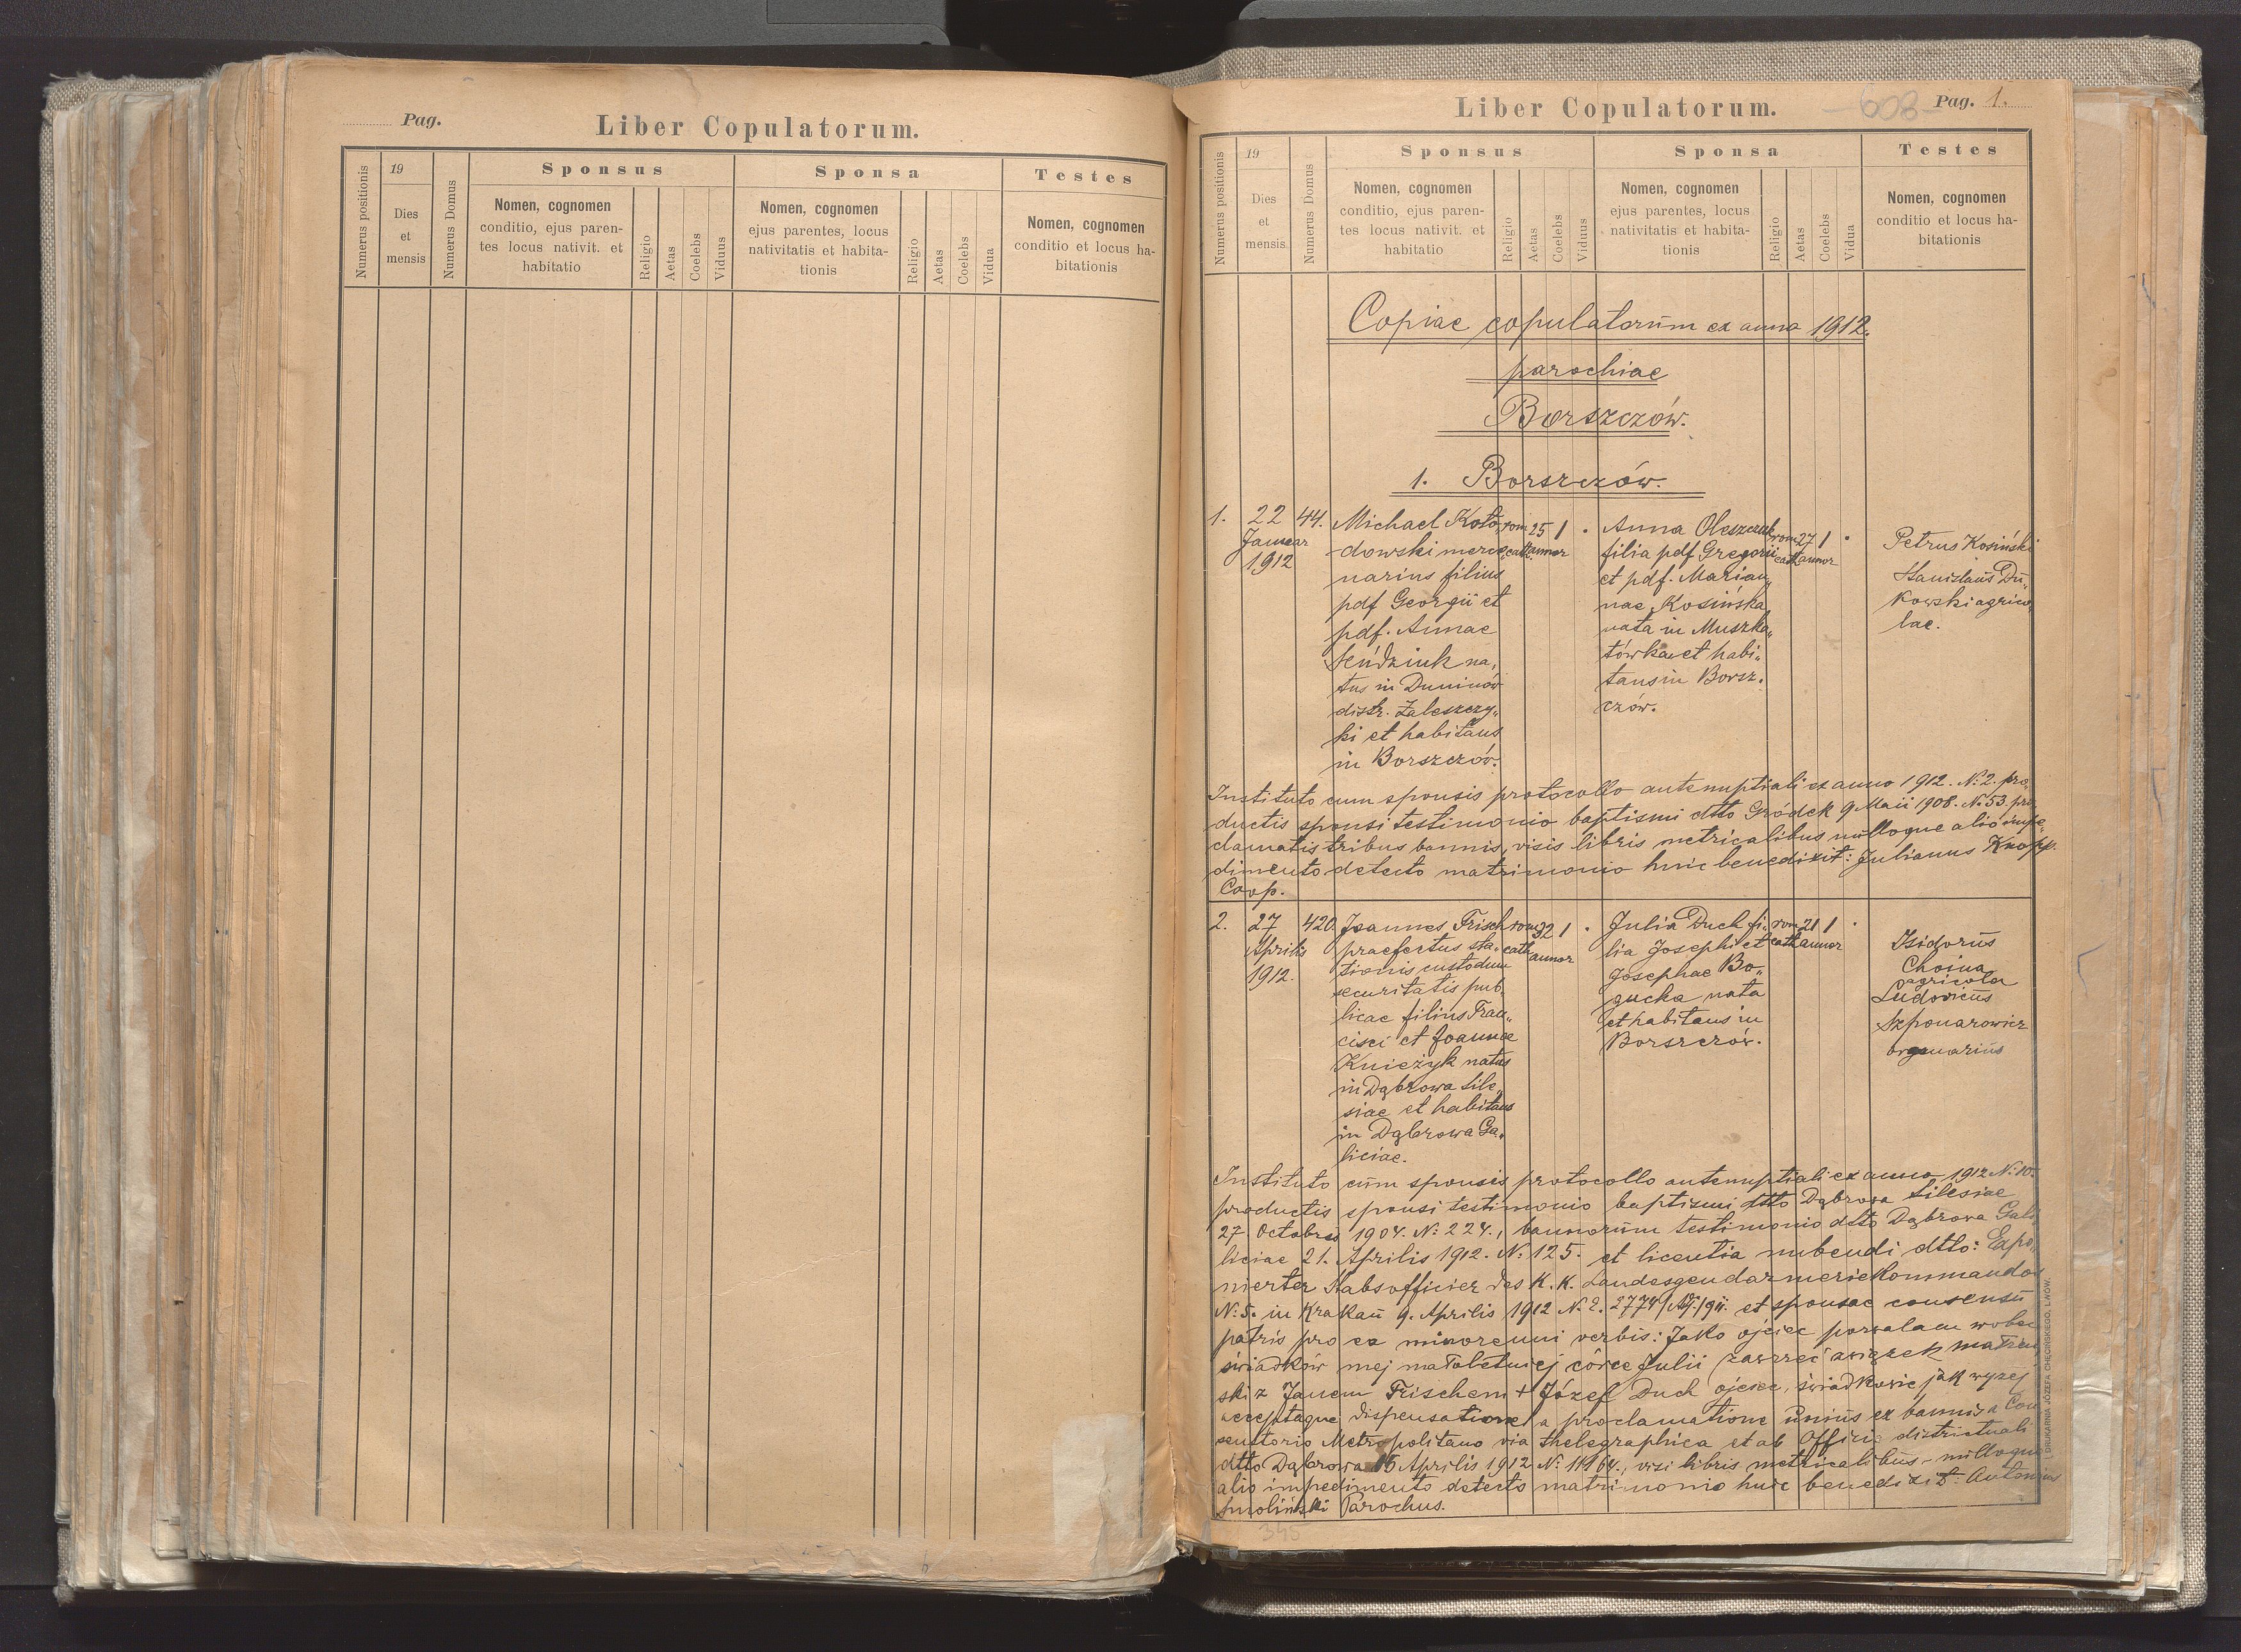 Pag.
Liber Copulatorum.
Numerus positionis
19
Dies
et
mensis
Numerus Domus
Sponsus
Nomen, cognomen
conditio, ejus paren-
tes locus nativit. et
habitatio
Religio
Aetas
Coelebs
Viduus
Sponsa
Nomen, cognomen
ejus parentes, locus
nativitatis et habita-
tionis
Religio
Aetas
Coelebs
Vidua
Testes
Nomen, cognomen
conditio et locus ha-
bitationis
Liber Copulatorum.
-603-
Pag. 1.
Numerus positionis
19
Dies
et
mensis
Numerus Domus
Sponsus
Nomen, cognomen
conditio, ejus paren-
tes locus nativit. et
habitatio
Religio
Aetas
Coelebs
Viduus
Sponsa
Nomen, cognomen
ejus parentes, locus
nativitatis et habita-
tionis
Religio
Aetas
Coelebs
Vidua
Testes
Nomen, cognomen
conditio et locus ha-
bitationis
Copiae copulatorum ex anno 1912.
parochiae
Borszczów.
1. Borszczów.
1.
22
Januar
1912
44.
Michael Koło-
dowski merce-
narius filius
pdf Georgii et
pdf. Annae
Seńdziuk na-
tus in Duninów
distr. Zaleszczy-
ki et habitans
in Borszczów.
rom
cath.
25
annor
1
Anna Oleszczuk
filia pdf Gregorii
et pdf. Marian-
nae Kosińska
nata in Muszka-
tówka et habi-
tans in Borsz-
czów.
rom
cath
27
annor
1
Petrus Kosiński
Stanislaus Du-
kowski agrico-
lae.
Instituto cum sponsis protocollo antenuptiali ex anno 1912. N: 2. pro-
ductis sponsi testimonio baptismi dtto Gródek 9 Maii 1908. N. 53. pro-
clamatis tribus bannis, visis libris metricalibus nulloque alio impe-
dimento detecto matrimonio huic benedixit: Julianus Knopp.
Coop.
2.
27
Aprilis
1912.
420.
Joannes Frisch
praefectus sta-
tionis custodum
securitatis pub-
licae filius Fran-
cisci et Joannae
Knieżyk natus
in Dąbrowa Sile-
siae et habitans
in Dąbrowa Ga-
liciae.
rom
cath
32
annor
1
Julia Duch fi-
lia Josephi et
Josephae Bo-
gucka nata
et habitans in
Borszczów.
rom
cath
21
annor
1
Isidorus
Choina
agricola
Ludovicus
Szponarowicz
organarius
Instituto cum sponsis protocollo antenuptiali ex anno 1912 N: 10.
productis sponsi testimonio baptismi dtto Dąbrowa Silesiae
27 Octobris 1904. N: 224., bannorum testimonio dtto Dąbrowa Gali-
liciae 21. Aprilis 1912. N: 125. et licentia nubendi dtto: Expo-
nierter Stabsofficier des K. K. Landesgendarmeriekommandos
N: 5. in Krakau 9. Aprilis 1912 N. E. 2774/Adj./911. et sponsae consensu
patris pro ea minorenni verbis: Jako ojciec pozwalam wobec
świadków mej małoletniej córce Julii zawrzeć związek małżeń
ski z Janem Frischem + Józef Duch ojciec, świadkowie jak wyżej
acceptaque dispensatione a proclamatione unius ex bannis a Con
sentorio Metropolitano via thelegraphica et ab Officio districtuali
dtto Dąbrowa 16 Aprilis 1912 N: 11164., visi libris metricalibus - nulloque
alio impedimento detecto matrimonio huic benedixit: Antonius
Smoliński Parochus.
DRUKARNIA JÓZEFA CHĘCIŃSKIEGO, LWÓW.
345